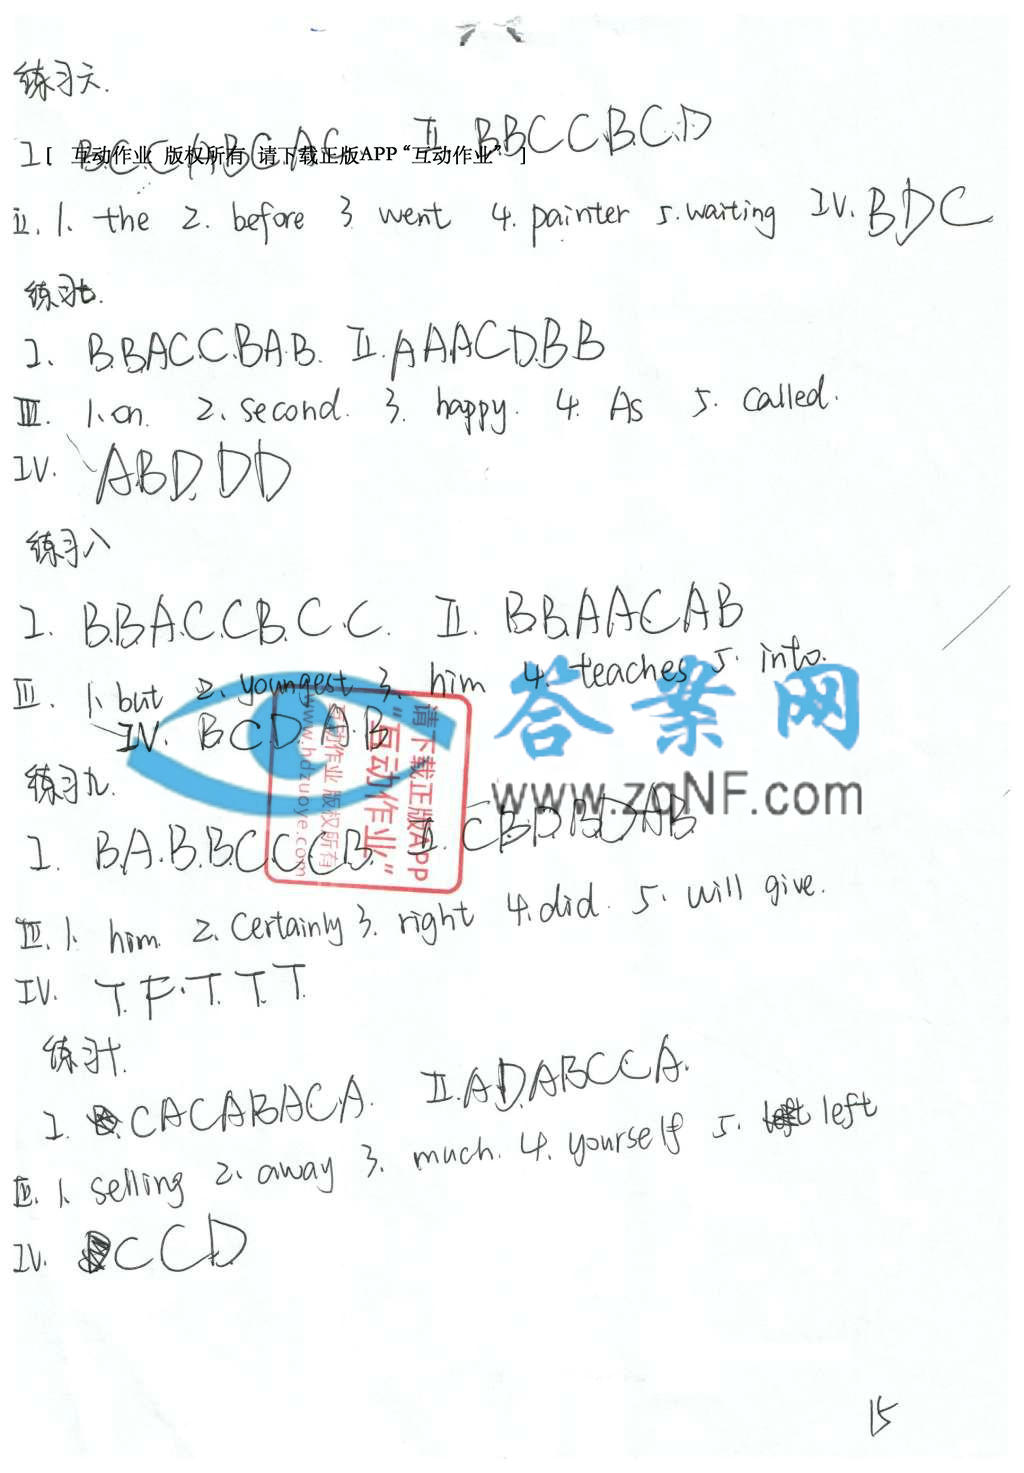 练习六.
I. B.C.C.A.B.C.A.C II. B B C C B.C.D
[ 互动作业 版权所有 请下载正版APP “互动作业” ]
III. 1. the 2. before 3. went 4. painter 5. waiting IV. B D C
练习七.
I. B.B.A.C.C.B.A.B. II. A A A C D.B B
III. 1. on. 2. second. 3. happy. 4. As 5. called.
IV. A.B.D.D D
练习八
I. B.B.A.C.C.B.C.C. II. B.B.A A C A B
III. 1. but 2. youngest 3. him 4. teaches 5. into.
IV. B.C.D.A.B
答案网
www.zqNF.com
请下载正版APP
“互动作业”
互动作业 版权所有
www.hdzuoye.com
练习九.
I. B.A.B.B.C.C.C.B. II. C B.D.B.D A B
III. 1. him. 2. Certainly 3. right 4. did. 5. will give.
IV. T. F. T. T. T
练习十.
I. C A C A B A C A. II. A D.A B C C A.
III. 1. selling 2. away 3. much. 4. yourself 5. left
IV. C C D
15